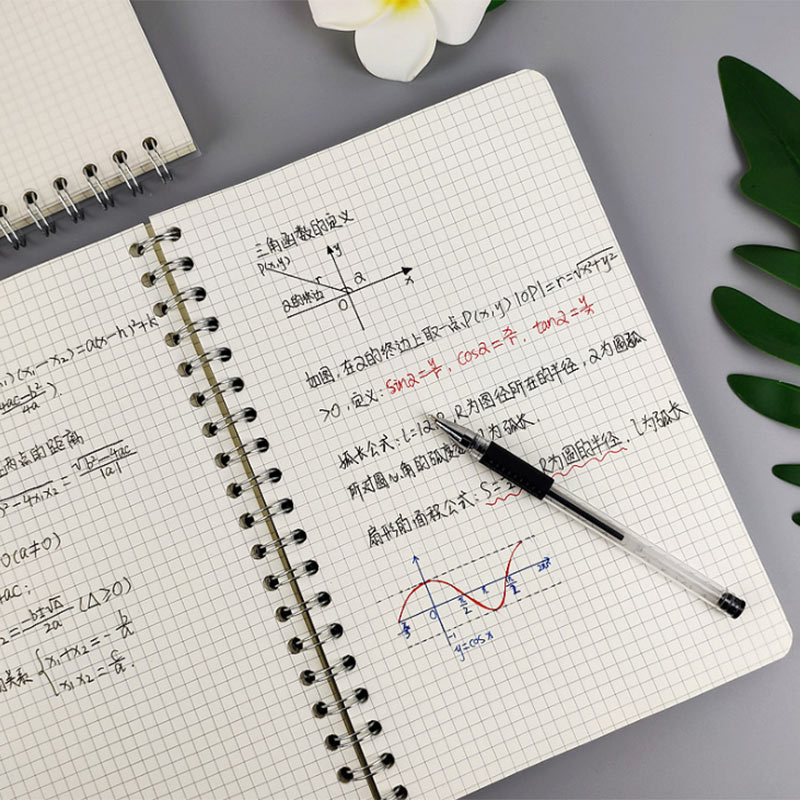 (x₁-x₂)=a(x-h)²+k
4ac-b²/4a).
两点的距离
-4x₁x₂=√b²-4ac/|a|
0(a≠0)
₂=-b±√Δ/2a (Δ>0)
关系{x₁+x₂=-b/a
x₁x₂=c/a.
三角函数的定义
P(x,y)
y
r
α
x
α的终边
O
如图,在α的终边上取一点P(x,y) |OP|=r=√x²+y²
>0,定义:sinα=y/r, cosα=x/r, tanα=y/x
弧长公式:l=|α|R R为圆径所在的半径,α为圆弧
所对圆心角的弧度 l为弧长.
扇形的面积公式:S= R为圆的半径,l为弧长
0
π/2
π
2π
-1
y=cosx